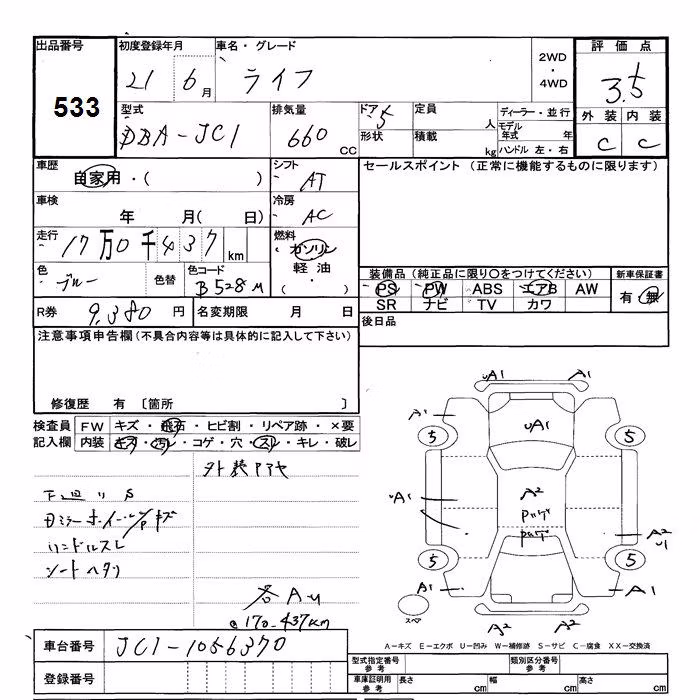 出品番号
533
初度登録年月
21 6月
車名・グレード
ライフ
2WD
・
4WD
評価点
3.5
外装 内装
C C
型式
DBA-JC1
排気量
660 CC
ドア 5
形状
定員 人
積載 kg
ディーラー・並行
モデル年式 年
ハンドル 左・右
車歴
自家用・( )
シフト
AT
車検
年 月( 日)
冷房
AC
走行
17万0千437 km
燃料
ガソリン
軽油
( )
色
ブルー
色替
色コード
B528M
R券 9,380円
名変期限 月 日
セールスポイント (正常に機能するものに限ります)
装備品 (純正品に限り○をつけてください)
PS PW ABS エアB AW
SR ナビ TV カワ
新車保証書
有・無
後日品
注意事項申告欄(不具合内容等は具体的に記入して下さい)
修復歴 有 〔箇所 〕
検査員記入欄
FW キズ・飛石・ヒビ割・リペア跡・×要
内装 キズ・汚れ・コゲ・穴・スレ・キレ・破レ
下廻りS
ハンドルスレ
シートヘタリ
各AU
@170-437km
UA1 A1
A1
UA1
5 5
UA1
A2
A2
U1
5 5
A1 A1
A2 A2
スペア
A-キズ E-エクボ U-凹み W-補修跡 S-サビ C-腐食 XX-交換済
車台番号 JC1-1056370
登録番号
型式指定番号 参考
類別区分番号 参考
車庫証明用 参考 長さ cm 幅 cm 高さ cm